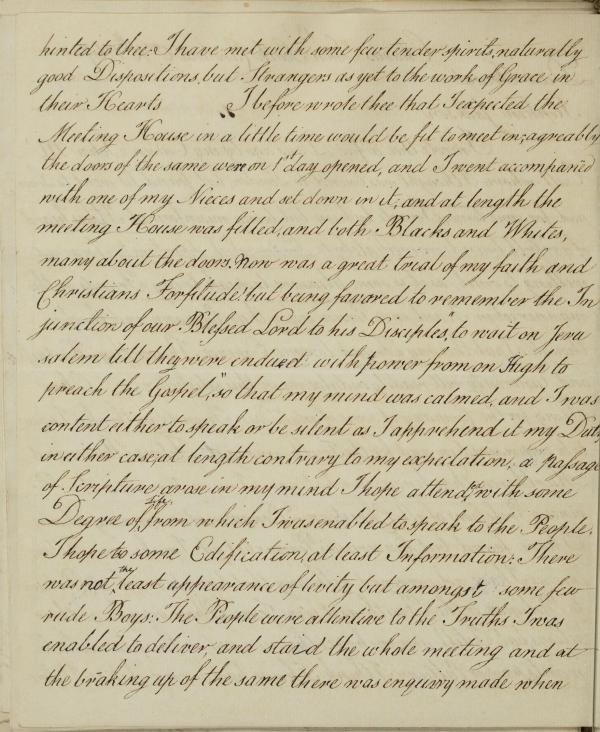 hinted to thee: I have met with some few tender spirits, naturally
good Dispositions, but Strangers as yet to the work of Grace in
their Hearts I before wrote thee that I expected the
Meeting House in a little time would be fit to meet in; agreeably
the doors of the same were on 1st day opened, and I went accompanied
with one of my Nieces and set down in it; and at length the
meeting House was filled, and both Blacks and Whites,
many about the doors: Now was a great trial of my faith and
Christians Forfitude! but being favared to remember the In
junction of our Blessed Lord to his Disciples", to wait on Jeru
salem till they were endued with power from on High to
preach the Gospel," so that my mind was calmed, and I was
content either to speak or be silent as I apprehend it my Duty
in either case; at length contrary to my expectation, a passage
of Scripture arose in my mind I hope attend,ed with some
Degree of life, from which I was enabled to speak to the People,
I hope to some Edification, at least Information: There
was not the least appearance of levity but amongst some few
rude Boys: The People were attentive to the Truths I was
enabled to deliver, and staid the whole meeting and at
the braking up of the same there was enquiry made when